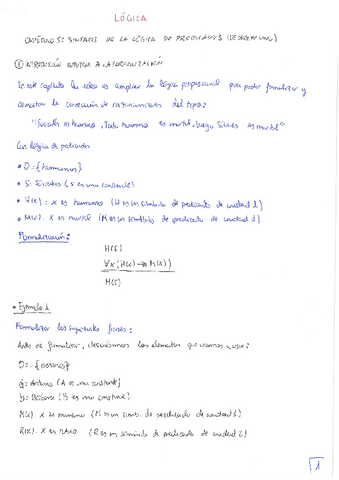 LÓGICA
CAPÍTULO 5: SINTAXIS DE LA LÓGICA DE PREDICADOS (DE ORDEN UNO)
INTRODUCCIÓN INTUITIVA A LA FORMALIZACIÓN
En este capítulo la idea es ampliar la lógica proposicional para poder formalizar y
demostrar la corrección de razonamientos del tipo:
"Sócrates es humano, Todo humano es mortal, luego Sócrates es mortal"
Con lógica de predicados
• D = {humanos}
• S: Sócrates (S es una constante)
• H(x): x es humano (H es un símbolo de predicado de aridad 1)
• M(x): x es mortal (M es un símbolo de predicado de aridad 1)
Formalización:
H(S)
∀x (H(x) → M(x))
M(S)
• Ejemplo 1
Formalizar las siguientes frases:
Antes de formalizar, describimos los elementos que vamos a usar:
D = {personas}
a = Antonio (A es una constante)
b = Bárbara (B es una constante)
M(x): x es humano (M es un símb. de predicado de aridad 1)
R(x): x es (R es un símbolo de predicado de aridad 2)
1